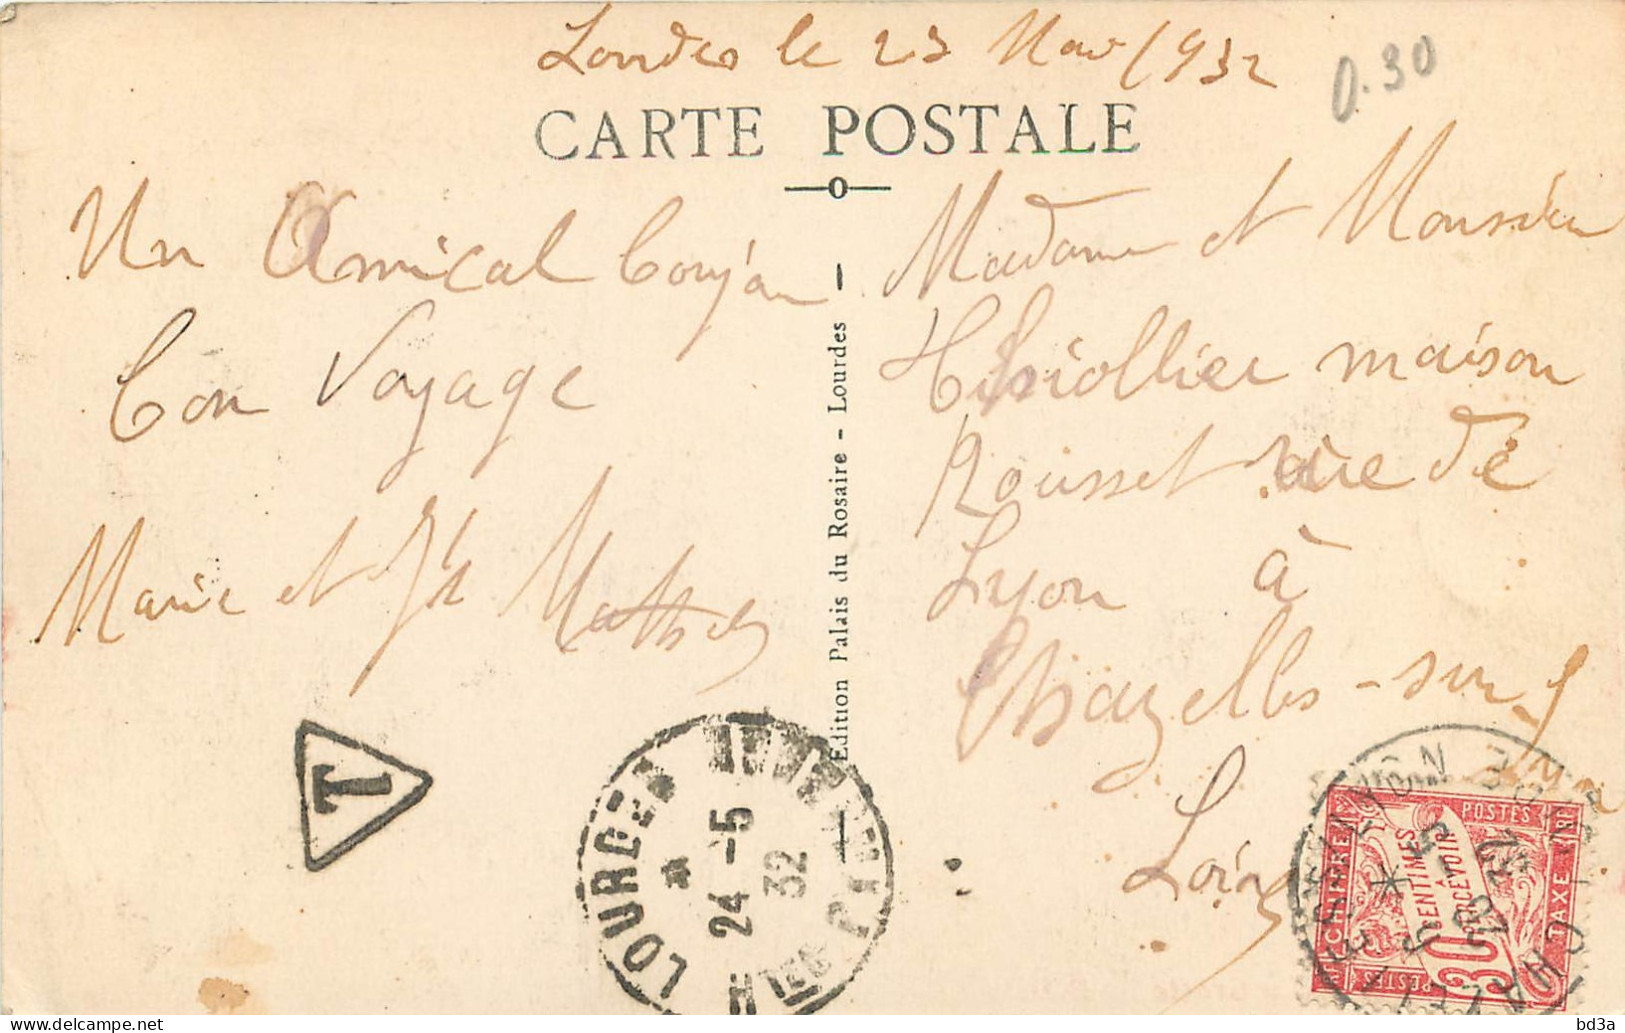 Lourdes le 23 Mai 1932
0.30
CARTE POSTALE
Un Amical Bonjour
Bon Voyage
Marie et Jh
Madame et Monsieur
Thiollier maison
Rousset rue de
Lyon à
Chazelles-sur-
Loire
Edition Palais du Rosaire - Lourdes
T
LOURDES
24-5
32
CHIFFRE POSTES RF
30 CENTIMES
A PERCEVOIR
TAXE POSTES
CHAZELLES-S-LYON
LOIRE